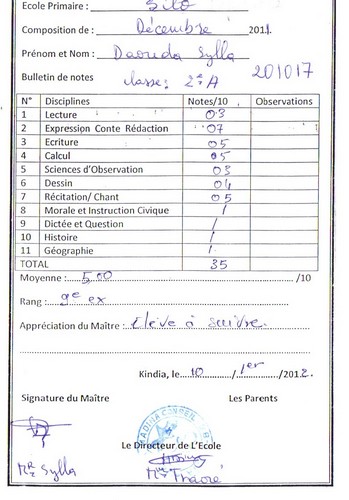 Ecole Primaire : Silo
Composition de : Décembre 2011.
Prénom et Nom : Daouda Sylla
Bulletin de notes classe: 2e A 201017
N° Disciplines Notes/10 Observations
1 Lecture 03
2 Expression Conte Rédaction 07
3 Ecriture 05
4 Calcul 05
5 Sciences d'Observation 03
6 Dessin 04
7 Récitation/ Chant 05
8 Morale et Instruction Civique /
9 Dictée et Question /
10 Histoire /
11 Géographie /
TOTAL 35
Moyenne : 5,00 /10
Rang : 9e ex
Appréciation du Maître : Elève à suivre.
Kindia, le 10 / 1er /2012
Signature du Maître Les Parents
Le Directeur de L'Ecole
Mr Sylla Mr Traoré